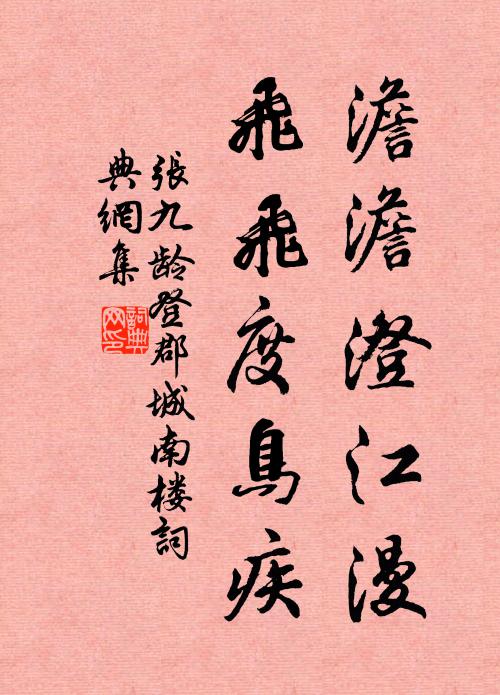 澹澹澄江漫
飛飛度鳥疾
張九齡登郡城南楼詞
典網集
詞典
网印